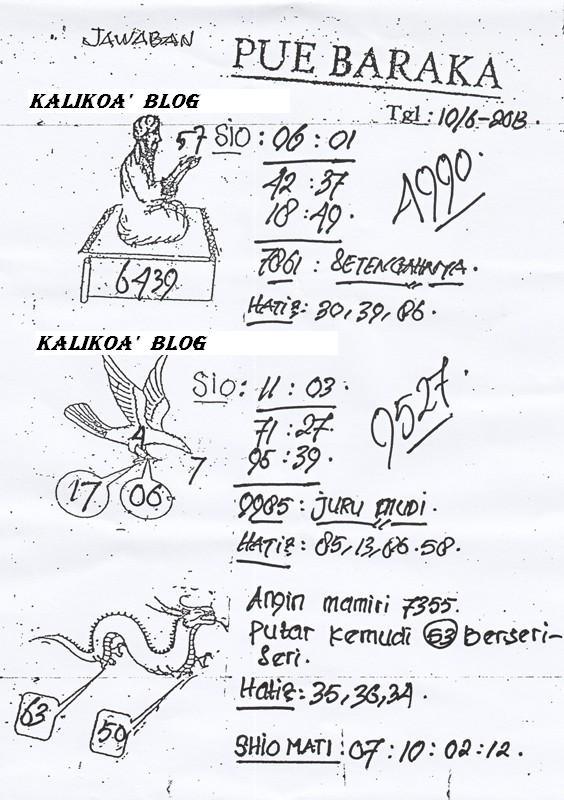 JAWABAN
PUE BARAKA
KALIKOA' BLOG
Tgl : 10/6-2013.
57 SIO : 06 : 01
42 : 37
18 : 49.
4990.
7861 : SETENGAHNYA.
6439
HATI2: 30, 39, 86.
KALIKOA' BLOG
SIO : 11 : 03.
71 : 27
95 : 39.
9527.
4
7
17 06
9985 : JURU MUDI.
HATI2: 85, 13, 66. 58.
Angin mamiri 7355.
Putar kemudi 53 berseri-
seri.
Hati2: 35, 36, 34.
63
50
SHIO MATI : 07 : 10 : 02 : 12.